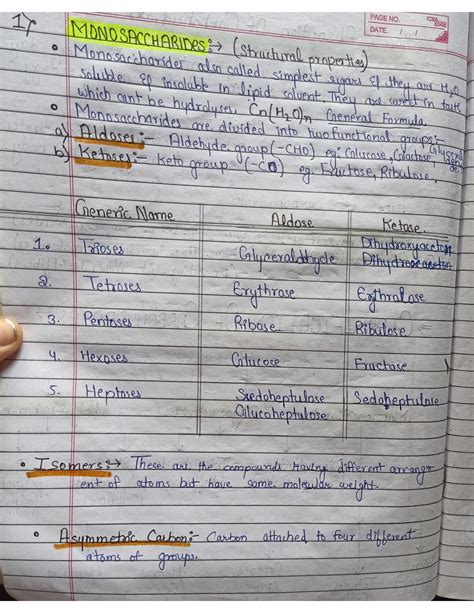 PAGE NO.
DATE: / /
1)
MONOSACCHARIDES:→ (Structural properties)
• Monosaccharides also called simplest sugars & they are H2O
soluble & insoluble in lipid solvent. They are sweet in taste
which cant be hydrolyses. Cn(H2O)n General Formula.
• Monosaccharides are divided into two functional groups:-
a) Aldoses:- Aldehyde group (-CHO) eg: Glucose, Galactose,
b) Ketoses:- Keto group (-CO) eg. Fructose, Ribulose,
Generic Name Aldose Ketose
1. Trioses Glyceraldehyde Dihydroxyaceton
2. Tetroses Erythrose Erythrolose
3. Pentoses Ribose Ribulose
4. Hexoses Glucose Fructose
5. Heptoses Sedoheptulose Sedoheptulose
Glucoheptulose
• Isomers:→ These are the compounds having different arrang
ement of atoms but have same molecular weight.
• Asymmetric Carbon:- Carbon attached to four different
atoms of groups.